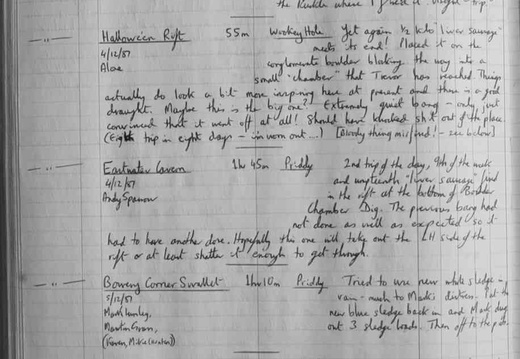 the Rudder where I
Halloween Rift 55m Wookey Hole Yet again ½ kilo "liver sausage"
4/12/87 meets its end! Placed it on the
Alone conglomerate boulder blocking the way into a
small "chamber" that Trevor has reached. Things
actually do look a bit more inspiring here at present and there is a good
draught. Maybe this is the big one? Extremely quiet bang - only just
convinced that it went off at all! Should have knocked shit out of the place.
(Eighth trip in eight days - i'm worn out...) [Bloody thing misfired! - see below]
Eastwater Cavern 1hr 45m Priddy 2nd trip of the day, 9th of the week
4/12/87 and umpteenth "liver sausage" fired
Andy Sparrow in the rift at the bottom of Boulder
Chamber Dig. The previous bang had
not done as well as expected so it
had to have another done. Hopefully this one will take out the LH side of the
rift or at least shatter it enough to get through.
Bowery Corner Swallet 1hr 10m Priddy Tried to use new white sledge in
5/12/87 vain - much to Mark's distress. Put the
Mark Lumley, new blue sledge back in and Mark dug
Martin Grass, out 3 sledge loads. Then off to the pub.